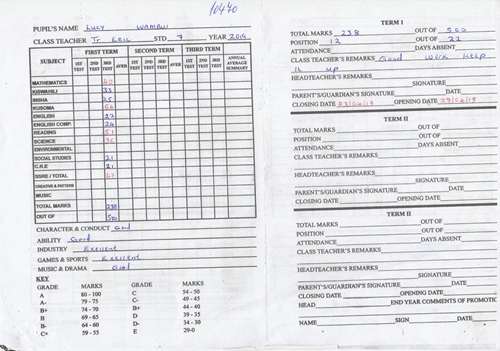 10440
PUPIL'S NAME Lucy Wambui
CLASS TEACHER Tr Eric STD 7 YEAR 2019
SUBJECT FIRST TERM SECOND TERM THIRD TERM ANNUAL AVERAGE SUMMARY
1ST TEST 2ND TEST 3RD TEST AVER 1ST TEST 2ND TEST 3RD TEST AVER 1ST TEST 2ND TEST 3RD TEST
MATHEMATICS 40
KISWAHILI 33
INSHA 25
KUSOMA
ENGLISH 27
ENGLISH COMP. 24
READING 51
SCIENCE 36
ENVIRONMENTAL
SOCIAL STUDIES 21
C.R.E 21
SSRE / TOTAL
CREATIVE & PATTERN
MUSIC
TOTAL MARKS 238
OUT OF 500
CHARACTER & CONDUCT Good
ABILITY Good
INDUSTRY Excellent
GAMES & SPORTS Excellent
MUSIC & DRAMA Good
KEY
GRADE MARKS GRADE MARKS
A 80 - 100 C 54 - 50
A- 79 - 75 C- 49 - 45
B+ 74 - 70 B+ 44 - 40
B 69 - 65 D
B- 64 - 60 D- 34 - 30
C+ 59 - 55 E 29-0
TERM I
TOTAL MARKS 238 OUT OF 500
POSITION 12 OUT OF 22
ATTENDANCE DAYS ABSENT
CLASS TEACHER'S REMARKS Good Work keep
it up
HEADTEACHER'S REMARKS
SIGNATURE
PARENT'S/GUARDIAN'S SIGNATURE DATE
CLOSING DATE 03/04/19 OPENING DATE 29/04/19
TERM II
TOTAL MARKS OUT OF
POSITION OUT OF
ATTENDANCE DAYS ABSENT
CLASS TEACHER'S REMARKS
HEADTEACHER'S REMARKS
SIGNATURE
PARENT'S/GUARDIAN'S SIGNATURE DATE
CLOSING DATE OPENING DATE
TERM II
TOTAL MARKS OUT OF
POSITION OUT OF
ATTENDANCE DAYS ABSENT
CLASS TEACHER'S REMARKS
HEADTEACHER'S REMARKS
SIGNATURE
PARENT'S/GUARDIAN'S SIGNATURE DATE
CLOSING DATE OPENING DATE
HEAD END YEAR COMMENTS OF PROMOTIC
NAME SIGN DATE